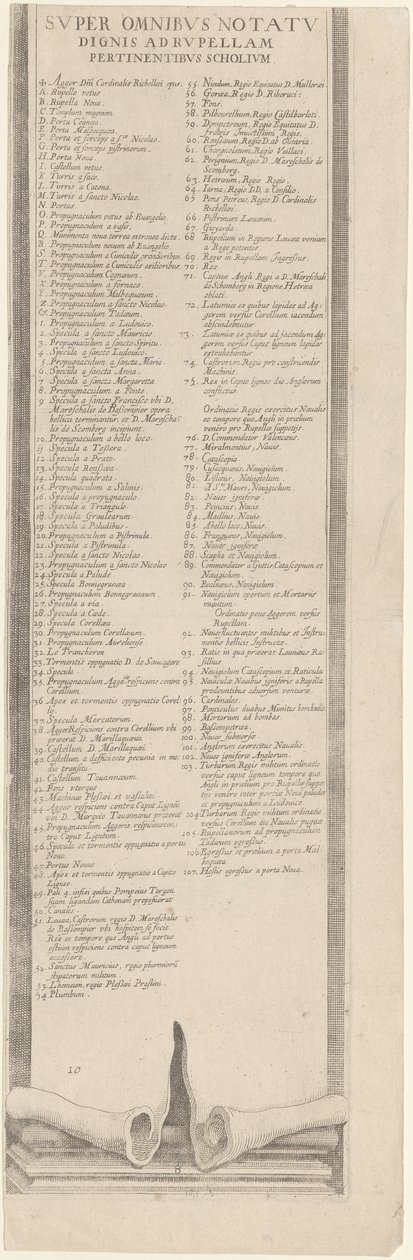 SVPER OMNIBVS NOTATV
DIGNIS AD RVPELLAM
PERTINENTIBVS SCHOLIVM
Agger Dni Cardinalis Richellei opus.
A. Rupella vetus.
B. Rupella Noua.
C. Templum magnum
D. Porta Cognias
E. Porta Malbequæa
F. Porta et forceps a Sto Nicolao.
G. Porta et forceps pistrinorum.
H. Porta Noua.
I. Castellum vetus.
K. Turris a face.
L. Turris a Catena.
M. Turris a sancto Nicolao.
N. Portus.
O. Propugnaculum vetus ab Euangelio
P. Propugnaculum a vasis.
Q. Munimenta noua terrea extranea dicta.
R. Propugnaculum nouum ab Euangelio.
S. Propugnaculum a Cuniculis grandioribus.
T. Propugnaculum a Cuniculis exilioribus.
V. Propugnaculum Cognæum.
X. Propugnaculum a fornace.
Y. Propugnaculum Malbequæum.
Z. Propugnaculum a sancto Nicolao
Propugnaculum Tadæum.
1. Propugnaculum a Ludouico
2. Specula a sancto Mauricio.
3. Propugnaculum a sancto Spiritu
4. Specula a sancto Ludouico.
5. Propugnaculum a sancta Maria
6. Specula a sancta Anna.
7. Specula a sancta Margaretta
8. Propugnaculum a Ponte.
9. Specula a sancto Francisco vbi D.
Mareschalis de Bassompier opera
bellica terminantur, et D. Marescha-
lis de Scomberg incipiunt.
10. Propugnaculum a bello loco.
11. Specula a Tessera.
12. Specula a Prato.
13. Specula Ronsæa.
14. Specula quadrata.
15. Propugnaculum a Salinis.
16. Specula a propugnaculo.
17. Specula a Triangulo
18. Specula Groulearum.
19. Specula a Paludibus.
20. Propugnaculum a Pistrinula.
21. Specula a Pistrinula.
22. Specula a sancto Nicolao.
23. Propugnaculum a sancto Nicolao
24. Specula a Palude
25. Specula Bonnegranæa
26. Propugnaculum Bonnegranæum.
27. Specula a via.
28. Specula a Cæde.
29. Specula Corellæa
30. Propugnaculum Corellæum.
31. Propugnaculum Aurehense
32. Le Trancheron
33. Tormentis oppugnatio D. de Souuigere
34. Specula
35. Propugnaculum Aggere respiciens contra
Corellium.
36. Apex et tormentis oppugnatio Corel
lij.
37. Specula Mercatorum.
38. Agger Respiciens contra Corellium vbi
præerat D. Marillaquæus
39. Castellum D. Marillaquei.
40. Castellum a deficiente pecunia in me
dio transitu
41. Castellum Touannæum.
42. Pons vterque
43. Machinæ Plessæi et vassalæi
44. Agger respiciens contra Caput Ligneũ
vbi D. Marquio Touannæus præerat
45. Propugnaculum Aggeris respiciens con-
tra Caput Ligneum.
46. Specula et tormentis oppugnatio a portu
Nouo.
47. Portus Nouus
48. Apex et tormentis oppugnatio a Capite
Ligneo
49. Pali 4. infixi quibus Pompeius Targon
suam ligandam Cathenam proposuerat
50. Canalis.
51. Leuwa, Castrorum regio D. Mareschalis
de Bassompier vbi hospitem se fecit
Rex eo tempore quo Angli ad portus
ostium respiciens contra caput ligneum
accessere.
52. Sanctus Mauricius, regio plurmiorũ
stipatorum militum
53. Lhoneum, regio Plessæi Praslini.
54. Plumbum.
55. Nindum, Regio Equitatus D. Mailleræi.
56. Goræa, Regio D. Riberaci:
57. Fons.
58. Pilbourellium, Regio Castilbarloti.
59. Dompetreum, Regio Equitatus D.
fratris Inuictissimi Regis.
60. Ronsæum, Regio D. ab Oliuaria.
61. Chargnoleum, Regio Vaillaci.
62. Perignium, Regio D. Mareschalis de
Scomberg.
63. Hetræum, Regis Regio.
64. Iarna, Regio D.D. a Consilio.
65. Pons Petreus, Regio D. Cardinalis
Richellei
66. Pistrinum Leuæum.
67. Guyarda
68. Rupellani in Regione Leuæa veniam
a Rege petentes
69. Regis in Rupellam Ingressus.
70. Rex
71. Captiui Angli Regi a D. Mareschali
de Schomberg in Regione Hetræa
oblati.
72. Latumiæ ex quibus lapides ad Ag-
gerem versus Corellium iacendum
abscindebantur
73. Latumiæ ex quibus ad faciendum Ag-
gerem versus Caput ligneum lapides
extrahebantur
74. Castrorum Regio pro construendis
Machinis
75. Rex in Capite ligneo dis Anglorum
conflictus.
Ordinatio Regis exercitus Naualis
eo tempore quo Angli in prælium
venere pro Rupellæ suppetijs.
76. D. Commendator Valencæus.
77. Miralmontius, Nauis.
78. Catascopia
79. Cusacquæus, Nauigiolum
80. Lislæus, Nauigiolum
81. A Sto Mauro, Nauigiolum.
82. Naues igniferæ.
83. Poincius, Nauis.
84. Maillius, Nauis
85. Abello loco, Nauis
86. Franguæus, Nauigiolum.
87. Naues igniferæ
88. Scapha et Nauigiolum
89. Commendator a Guttis, Catascopium et
Nauigiolum.
90. Beulneus, Nauigiolum.
91. Nauigiolum opertum et Mortarijs
munitum
Ordinatio pone Aggerem versus
Rupellam.
92. Naues fluctuantes militibus et Instru-
mentis bellicis Instructæ.
93. Ratis in qua præerat Lounæus Ra-
sillius
94. Nauigiolum Catascopium et Raticula
95. Nauiculæ Nauibus igniferis a Rupella
prodeuntibus aduersum venturæ.
96. Cardinales
97. Ponticulus duabus Munitus bombardis.
98. Mortarium ad bombas.
99. Bassompetræa.
100. Naues submersæ
101. Anglorum exercitus Naualis.
102. Naues igniferæ Anglorum.
103. Turbarum Regis militum ordinatio
versus caput ligneum tempore quo
Angli in prælium pro Rupellæ suppen
tijs venere inter portus Noui paludes
et propugnaculum a Ludouico.
104. Turbarum Regis militum ordinatio
versus Corellium dis Naualis pugnæ
105. Rupellanorum ad propugnaculum
Tadæum egressus.
106. Egressus et prælium a porta Mal
bequæa
107. Hostis egressus a porta Noua.
10
8